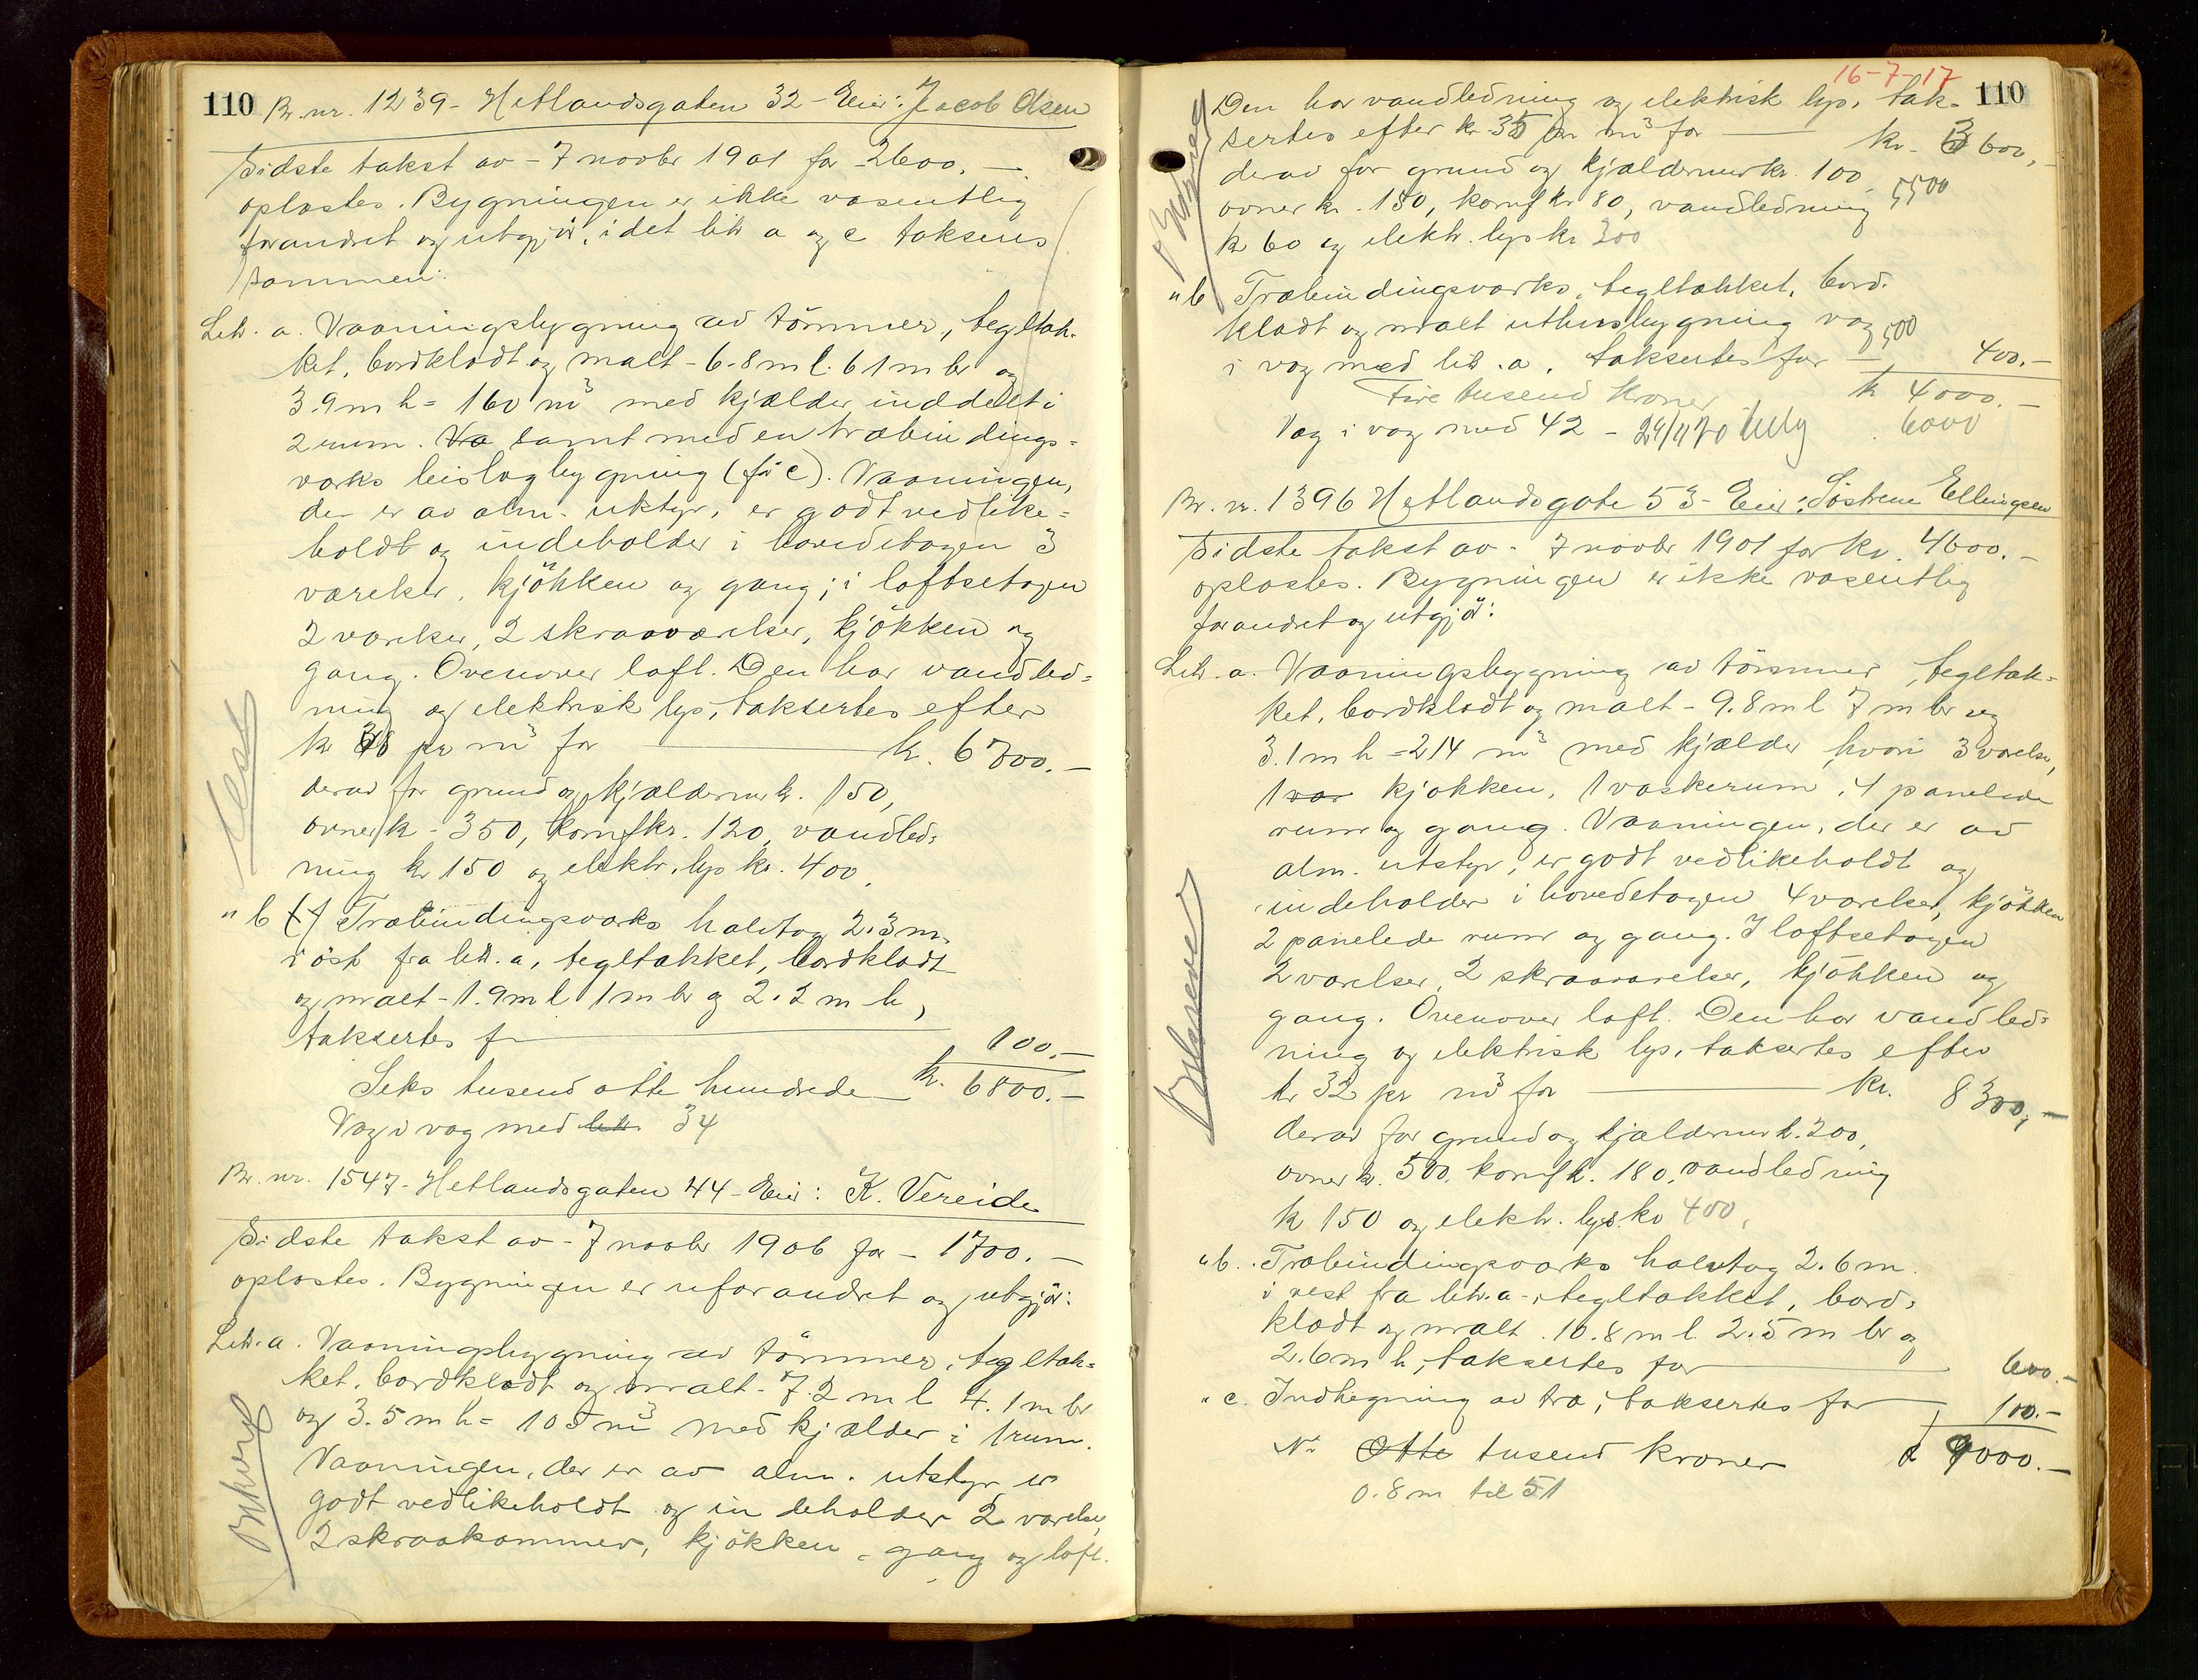 110 Br. nr. 1239 - Hetlandsgaten 32 - Eier: Jacob Olsen
Sidste takst av - 7 novbr 1901 for 2600.-
oplæstes. Bygningen er ikke væsentlig
forandret og utgjör, idet litr a og c takseres
sammen:
Litr. a. Vaaningsbygning av tömmer, tegltæk-
ket, bordklædt og malt - 6.8 m l. 6.1 m br og
3.9 m h = 160 m³ med kjælder inddelt i
2 rum. Va samt med en træbindings-
verks bislagbygning (för c). Vaaningen,
der er av alm. utstyr, er godt vedlike-
holdt og indeholder i hovedetagen 3
værelser, kjökken og gang; i loftsetagen
2 værelser, 2 skraaværelser, kjökken og
gang. Ovenover loft. Den har vandled-
ning og elektrisk lys, taksertes efter
kr 38 pr m³ for kr. 6700.-
derav for grund og kjældermur kr. 150,
ovner kr - 350, komf kr. 120, vandled-
ning kr 150 og elektr. lys kr. 400.
" b (f) Træbindingsverks halvtag 2.3 m.
i öst fra litr. a, tegltækket, bordklædt
og malt - 1.9 m l 1 m br og 2.2 m h,
taksertes f 100.-
Seks tusend otte hundrede kr. 6800.-
Væg i væg med litr 34
Br. nr. 1547 - Hetlandsgaten 44 - Eier: K. Vereide
Sidste takst av - 7 novbr 1906 for - 1700.-
oplæstes. Bygningen er uforandret og utgjör:
Litr. a. Vaaningsbygning av tömmer, tegltæk-
ket, bordklædt og malt - 7.2 m l 4.1 m br
og 3.5 m h = 105 m³ med kjælder i 1 rum.
Vaaningen, der er av alm. utstyr, er
godt vedlikeholdt og indeholder 2 værelser,
2 skraakammer, kjökken, gang og loft.
16-7-17
Den har vandledning og elektrisk lys, tak- 110
sertes efter kr 35 pr m³ for kr. 3600,-
derav for grund og kjældermur kr. 100 5500
ovner kr. 150, komf kr 80, vandledning
kr 60 og elektr. lys kr 300
" b Træbindingsverks, tegltækket, bord-
klædt og malt uthusbygning væg 500
i væg med litr. a, taksertes for 400.-
Fire tusend kroner kr 4000.-
Væg i væg med 42 - 24/11 20 6000
Br. nr. 1396 Hetlandsgate 53 - Eier: Söstrene Ellingsen
Sidste takst av - 7 novbr 1901 for kr. 4600.-
oplæstes. Bygningen er ikke væsentlig
forandret og utgjör:
Litr. a. Vaaningsbygning av tömmer, tegltæk-
ket, bordklædt og malt - 9.8 m l 7 m br og
3.1 m h = 214 m³ med kjælder, hvori 3 værelser,
1 vær kjökken, 1 vaskerum, 4 panelede
rum og gang. Vaaningen, der er av
alm. utstyr, er godt vedlikeholdt og
indeholder i hovedetagen 4 værelser, kjökken
2 panelede rum og gang. I loftsetagen
2 værelser, 2 skraaværelser, kjökken og
gang. Ovenover loft. Den har vandled-
ning og elektrisk lys, taksertes efter
kr 32 pr m³ for kr. 8300,-
derav for grund og kjældermur kr. 200,
ovner kr. 500, komf kr. 180, vandledning
kr 150 og elektr. lys kr 400,
" b. Træbindingsverks halvtag 2.6 m.
i vest fra litr. a - tegltækket, bord-
klædt og malt. 10.8 m l. 2.5 m br og
2.6 m h, taksertes for 600.-
" c. Indhegning av træ, taksertes for 100.-
Ni Otte tusend kroner kr 9000.-
0.8 m til 51